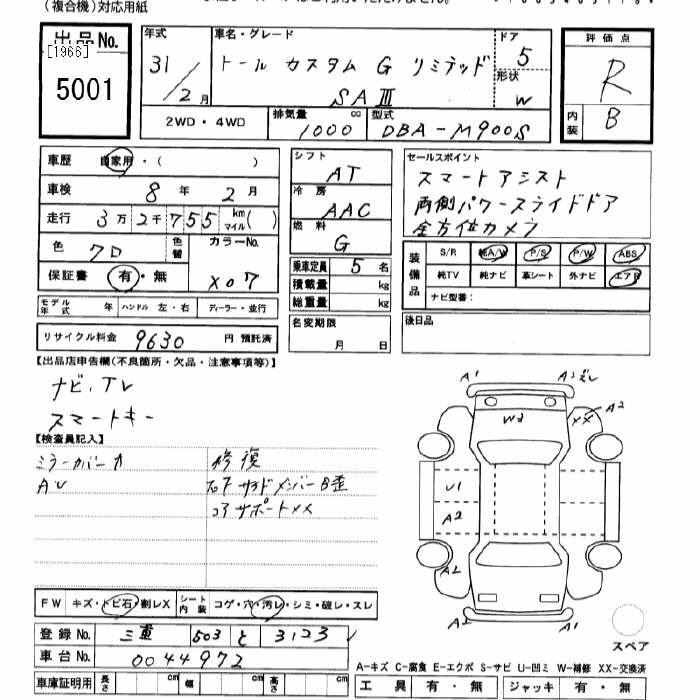 (複合機)対応用紙
出品No. [1966] 5001
年式 31/2月
車名・グレード トール カスタム G リミテッド SAⅢ
ドア 5
形状 W
評価点 R
内装 B
2WD・4WD
排気量 1000 cc
型式 DBA-M900S
車歴 自家用・( )
車検 8年 2月
走行 3万2千755 km マイル( )
色 7D 色替
カラーNo. X07
保証書 有・無
モデル年式 年 ハンドル 左・右 ディーラー・並行
リサイクル料金 9630 円 預託済
シフト AT
冷房 AAC
燃料 G
乗車定員 5名
積載量 kg
総重量 kg
名変期限 月 日
セールスポイント
スマートアシスト
両側パワースライドドア
全方位カメラ
装備品 S/R 純A/V P/S P/W ABS
純TV 純ナビ 革シート 外ナビ エアB
ナビ型番:
後日品
【出品店申告欄(不良箇所・欠品・注意事項等)】
ナビ、TV
スマートキー
【検査員記入】
ミラーカバーカ
AU
修復
右F サイドメンバーB歪
コアサポートメス
A1
A2ズレ
A2
XX
W2
U1
A2
A2
A2
A1
FW キズ・トビ石・割レX
シート内装 コゲ・穴・汚レ・シミ・破レ・スレ
登録No. 三重 503 と 3123
車台No. 0044972
車庫証明用 長さ cm 幅 cm 高さ cm
スペア
A-キズ C-腐食 E-エクボ S-サビ U-凹ミ W-補修 XX-交換済
工具 有・無 ジャッキ 有・無